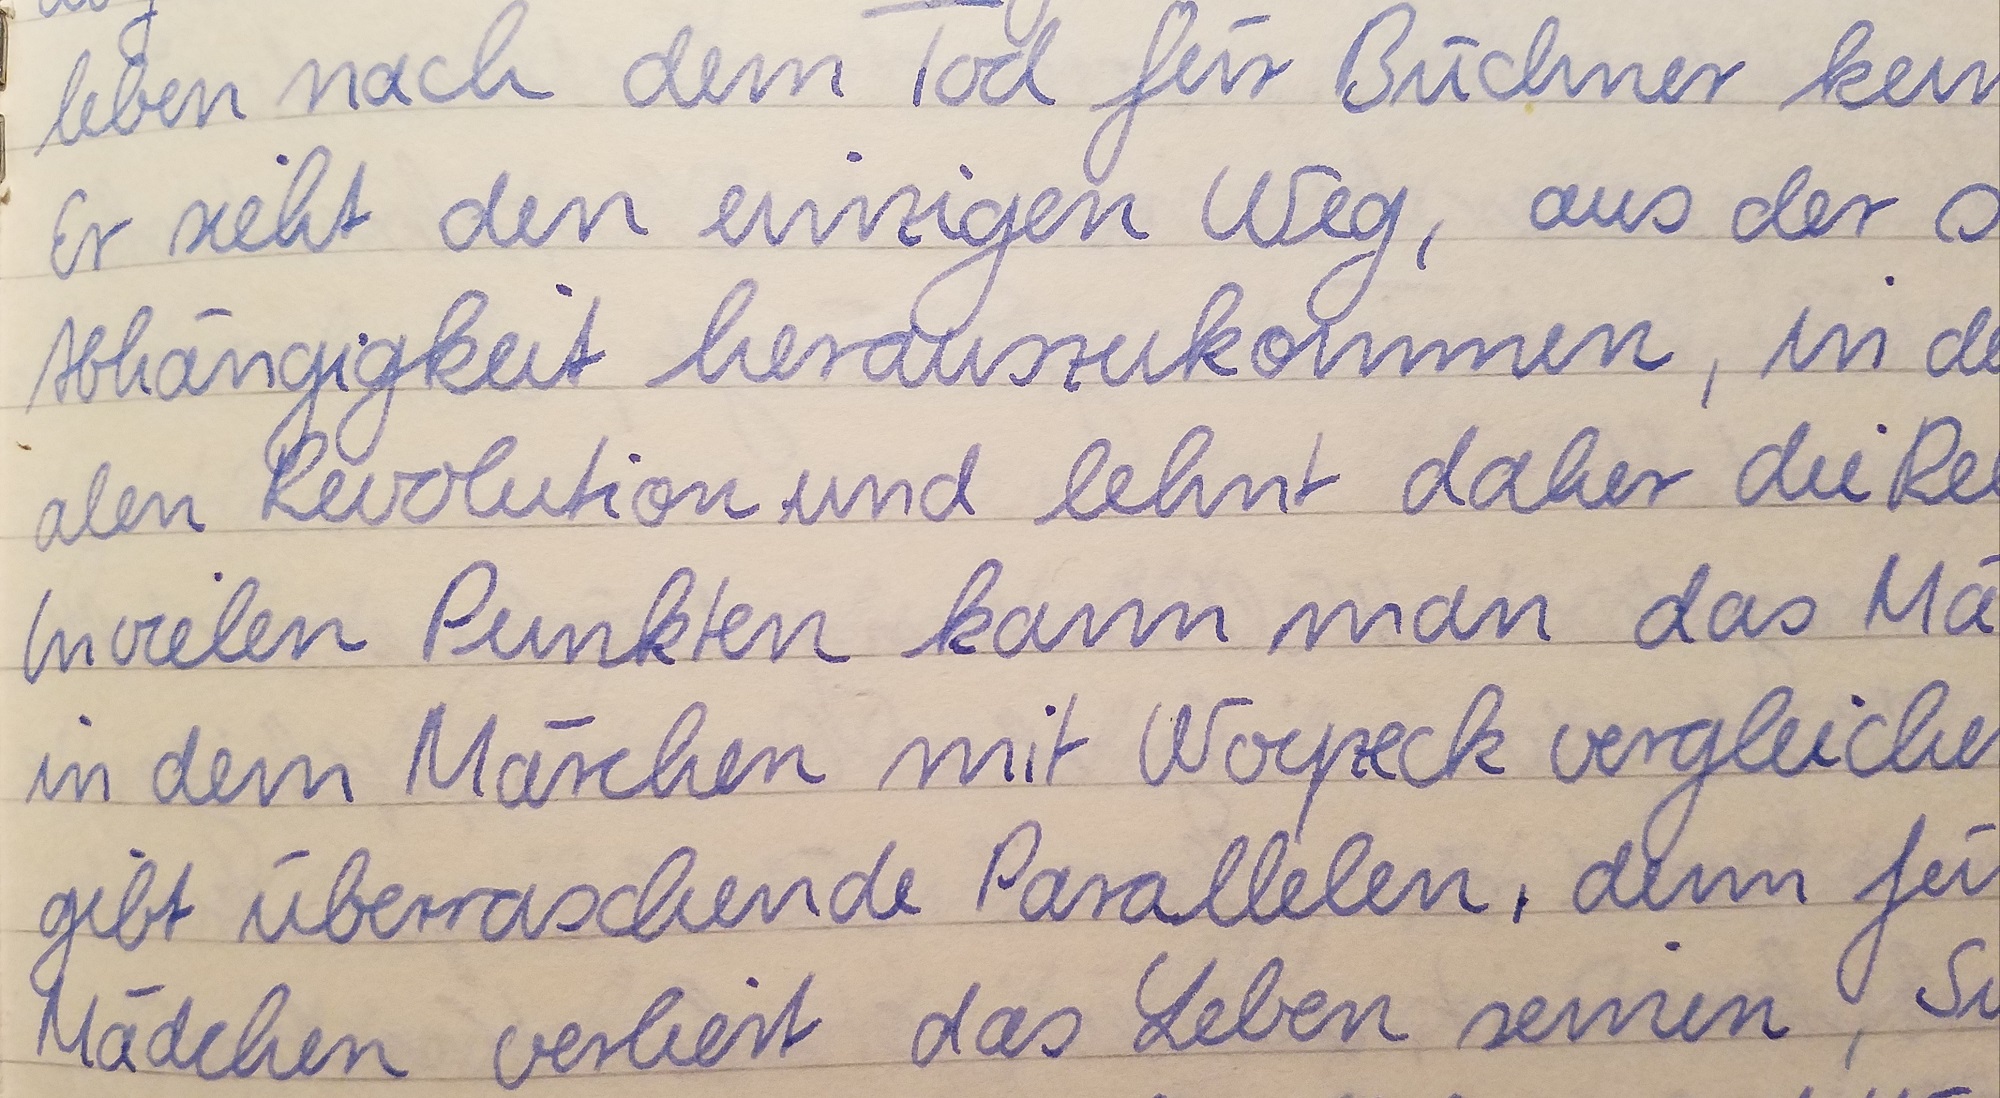 leben nach dem Tod für Büchner
Er sieht den einzigen Weg, aus der
Abhängigkeit herauszukommen, in
alen Revolution und lehnt daher die
In vielen Punkten kann man das
in dem Märchen mit Woyzeck
gibt überraschende Parallelen, denn
Mädchen verliert das Leben seinen,